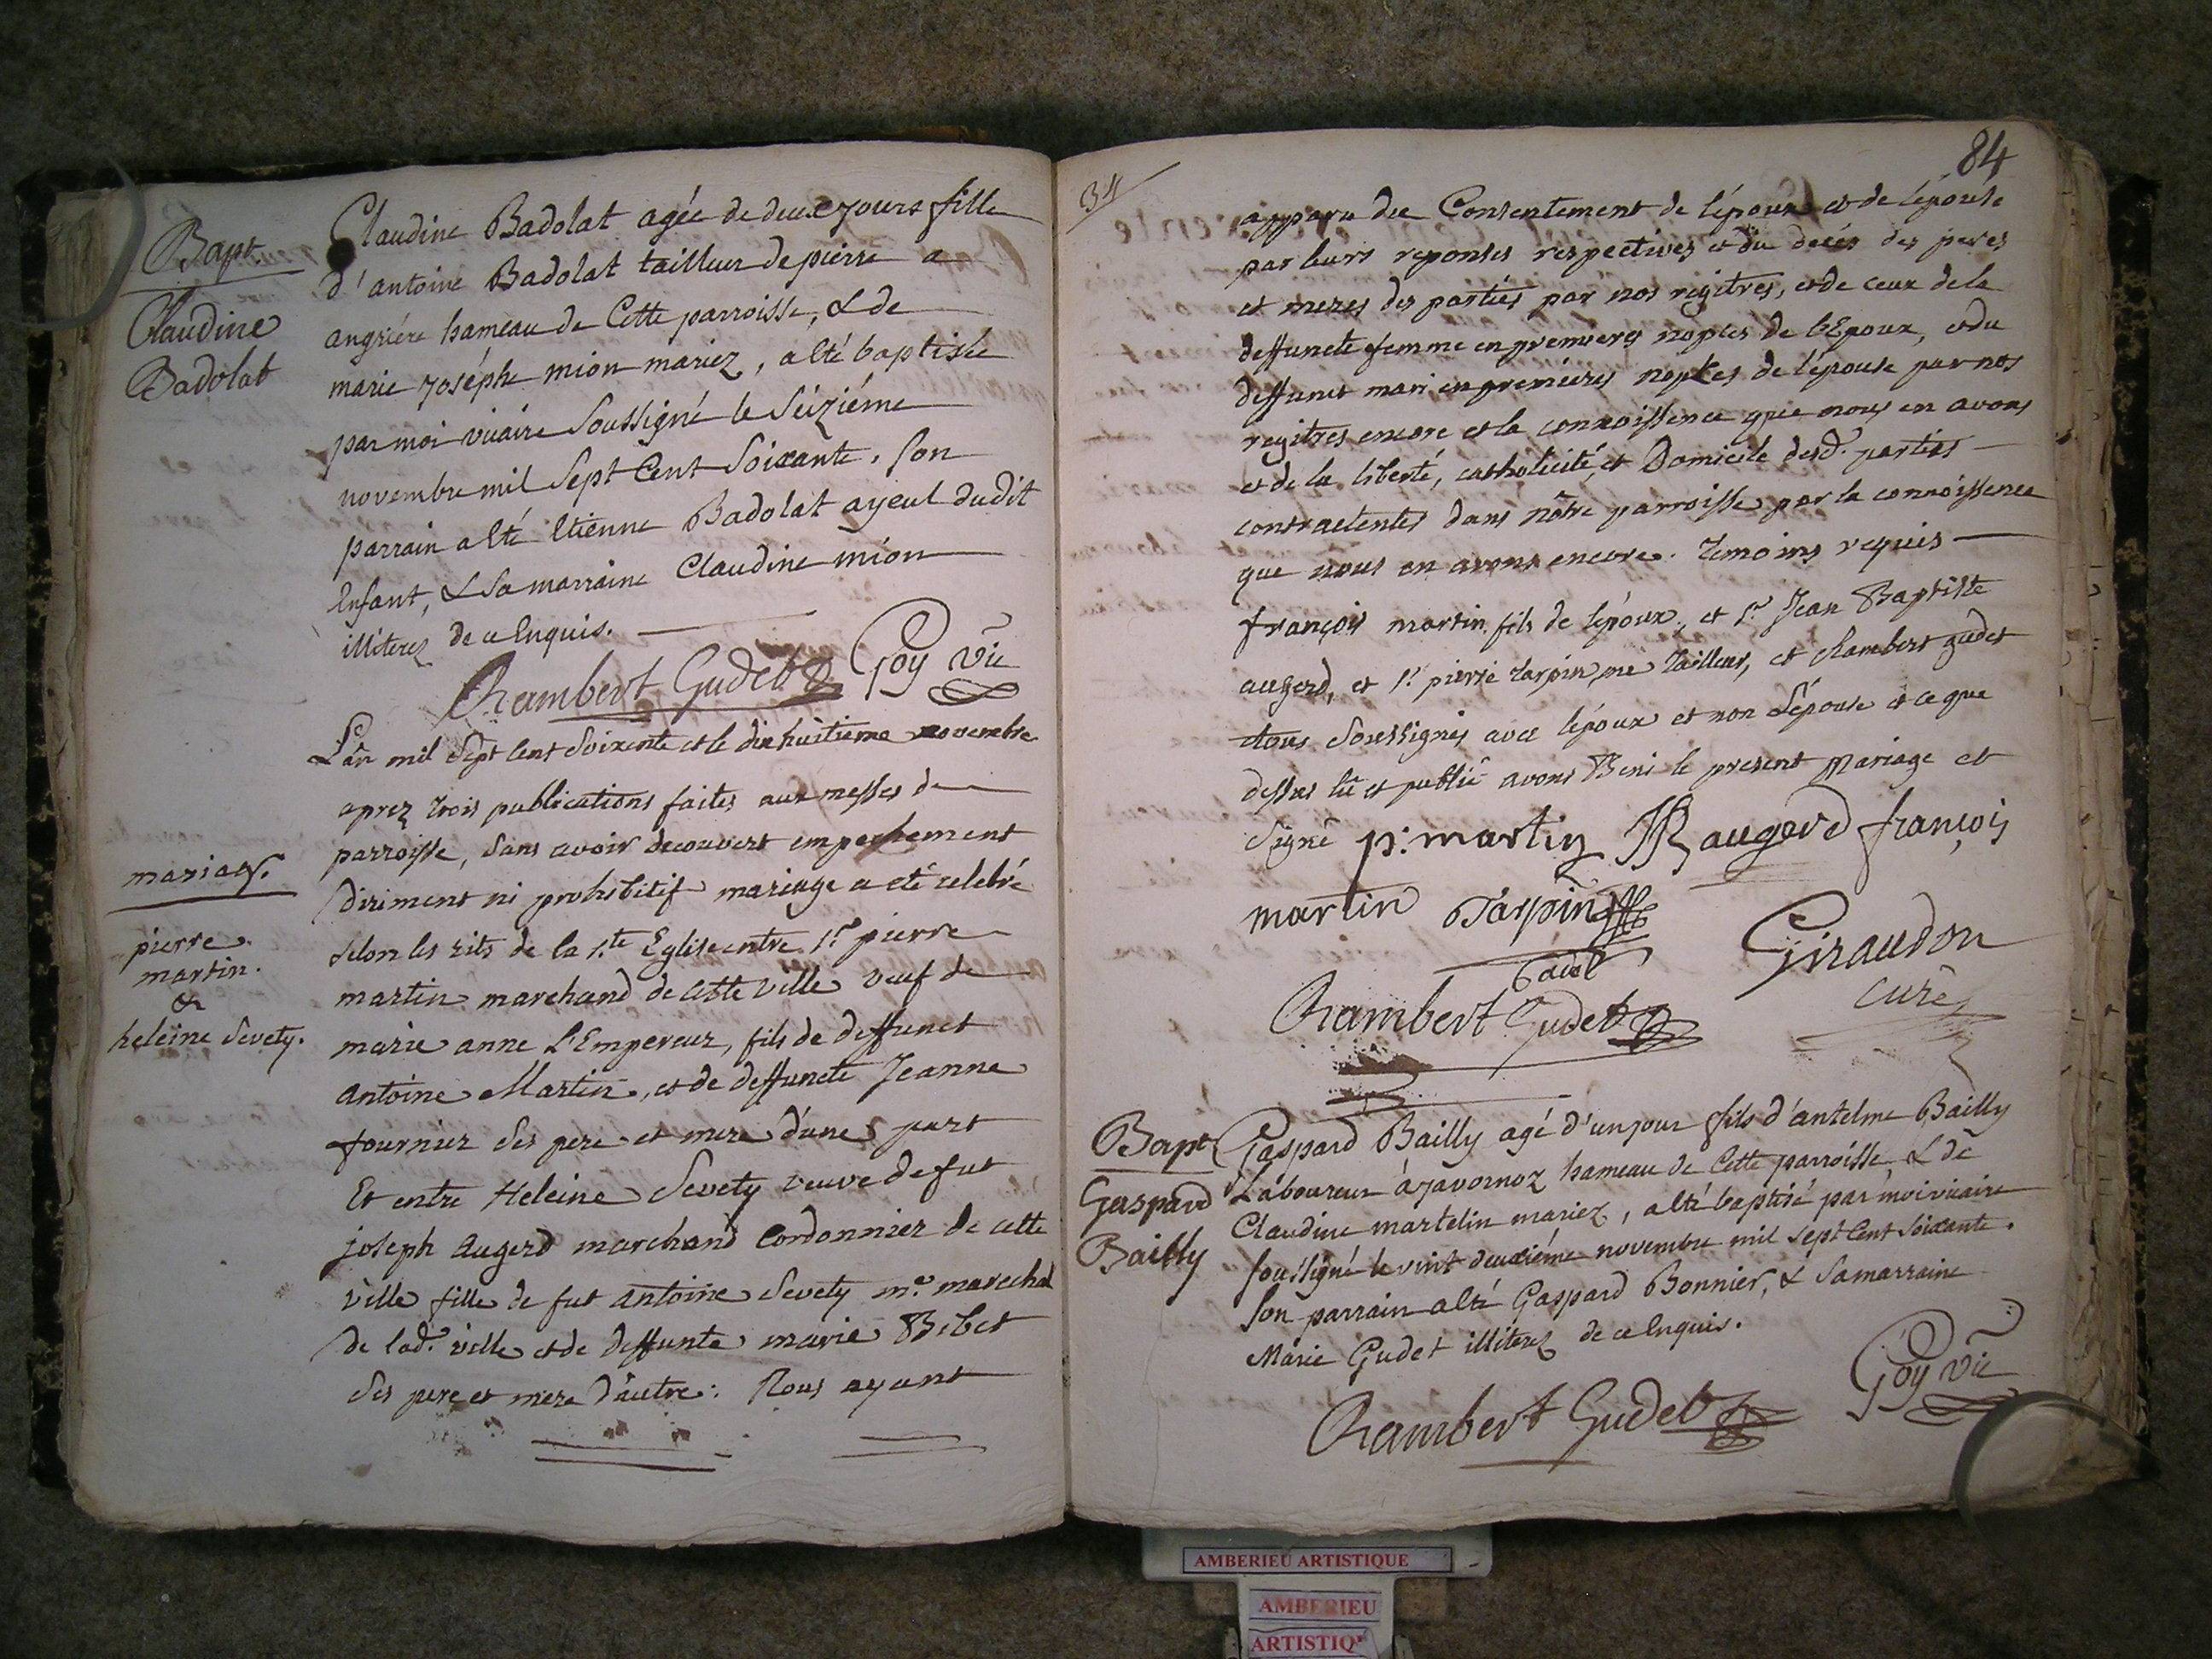 Bapt
Claudine
Badolat
Claudine Badolat agée de deux jours fille
d'antoine Badolat tailleur de pierre a
angriére hameau de Cette parroisse, & de
marie joséphe mion mariez, a été baptisée
par moi vicaire Soussigné le Seiziéme
novembre mil Sept Cent Soixante, Son
parrain a été Etienne Badolat ayeul dudit
Enfant, & Sa marraine Claudine mion
illiterez de ce Enquis.
Rambert Gudet Goy vic
mariage.
pierre
martin.
&
heleine Sevety.
L'an mil Sept Cent Soixente et le dix huitieme novembre
aprez trois publications faites aux messes de
parroisse, sans avoir decouvert empechement
diriment ni prohibitif mariage a eté celebré
selon les rits de la S.te Eglise entre S.r pierre
martin marchand de cette ville veuf de
marie anne L'Empereur, fils de deffunct
antoine Martin, et de deffuncte Jeanne
fournier ses pere et mere d'une part
Et entre Heleine Sevety veuve de fut
joseph augerd marchand Cordonnier de cette
ville fille de fut antoine Sevety m.e marechal
de lad.e ville et de deffunte marie Bibet
ses pere et mere d'autre: Nous ayant
34
84
apparu du Consentement de l'époux et de l'épouse
par leurs reponses respectives et du decés des peres
et meres des parties par nos regitres, et de ceux de la
deffuncte femme en premieres nopces de l'Epoux, et du
deffunct mari en premieres nopces de l'épouse par nos
regitres encore et la connoissence que nous en avons
et de la liberté, catholicité, et Domicile desd. parties
contractentes dans nôtre parroisse par la connoissence
que nous en avons encore. Temoins requis
françois martin fils de l'époux, et S.r Jean Baptiste
augerd, et S.r pierre tarpin me tailleur, et Rambert gudet
tous Soussignés avec l'époux et non l'épouse et ce que
dessus lû et publié avons Beni le present mariage et
signé p: martin JB augerd françois
martin Tarpin
Rambert Gudet
Giraudon
curé
Bapt
Gaspard
Bailly
Gaspard Bailly agé d'un jour fils d'antelme Bailly
Laboureur à javornoz hameau de Cette parroisse, & de
Claudine martelin mariez, a été baptisé par moi vicaire
soussigné le vint deuxiéme novembre mil sept Cent Soixante.
Son parrain a été Gaspard Bonnier, & Sa marraine
Marie Gudet illiterez de ce Enquis.
Rambert Gudet
Goy vic
AMBERIEU ARTISTIQUE
AMBERIEU
ARTISTIQ